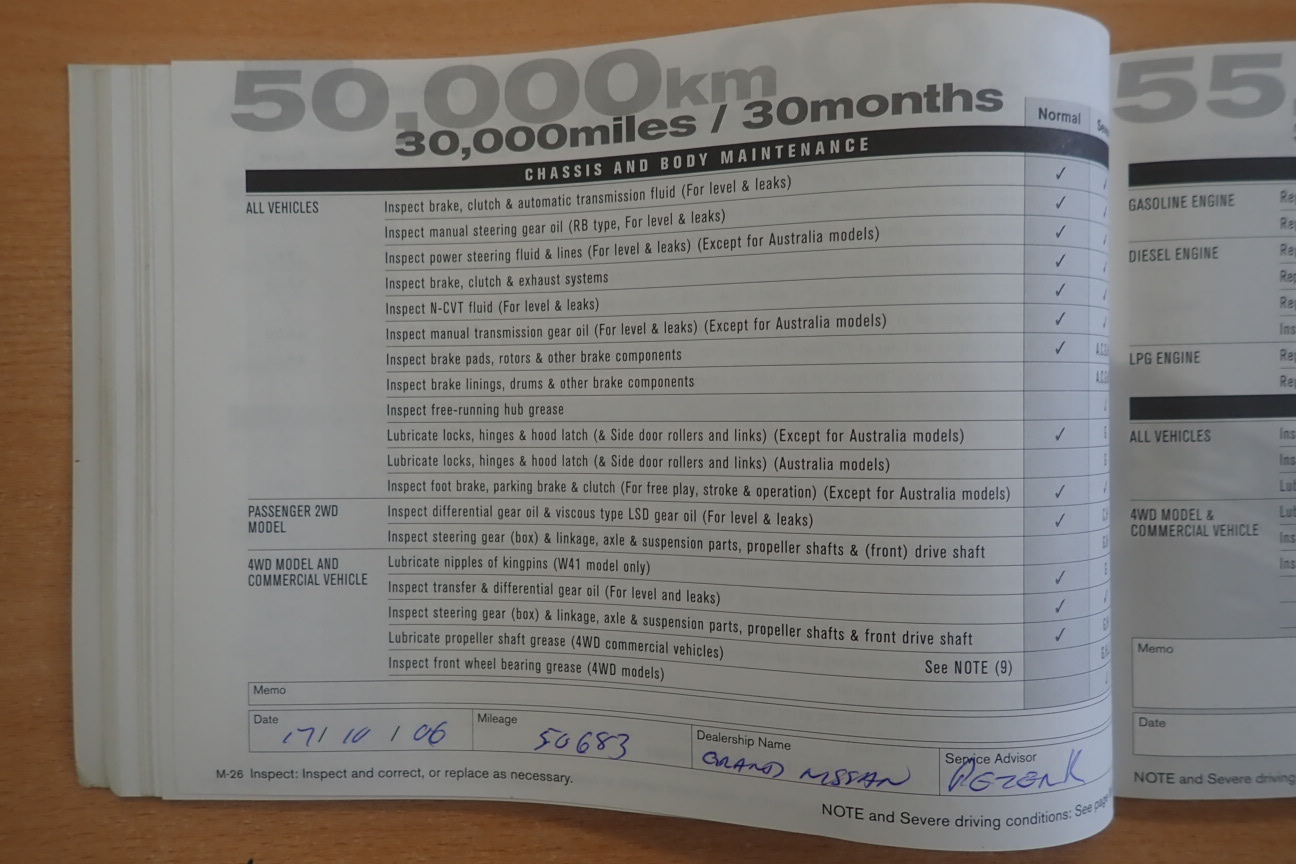 50,000km
30,000miles / 30months
Normal
CHASSIS AND BODY MAINTENANCE
ALL VEHICLES
Inspect brake, clutch & automatic transmission fluid (For level & leaks) ✓
Inspect manual steering gear oil (RB type, For level & leaks) ✓
Inspect power steering fluid & lines (For level & leaks) (Except for Australia models) ✓
Inspect brake, clutch & exhaust systems ✓
Inspect N-CVT fluid (For level & leaks) ✓
Inspect manual transmission gear oil (For level & leaks) (Except for Australia models) ✓
Inspect brake pads, rotors & other brake components ✓
Inspect brake linings, drums & other brake components
Inspect free-running hub grease
Lubricate locks, hinges & hood latch (& Side door rollers and links) (Except for Australia models) ✓
Lubricate locks, hinges & hood latch (& Side door rollers and links) (Australia models)
Inspect foot brake, parking brake & clutch (For free play, stroke & operation) (Except for Australia models) ✓
PASSENGER 2WD
MODEL
Inspect differential gear oil & viscous type LSD gear oil (For level & leaks) ✓
Inspect steering gear (box) & linkage, axle & suspension parts, propeller shafts & (front) drive shaft
4WD MODEL AND
COMMERCIAL VEHICLE
Lubricate nipples of kingpins (W41 model only) ✓
Inspect transfer & differential gear oil (For level and leaks) ✓
Inspect steering gear (box) & linkage, axle & suspension parts, propeller shafts & front drive shaft ✓
Lubricate propeller shaft grease (4WD commercial vehicles)
Inspect front wheel bearing grease (4WD models) See NOTE (9)
Memo
Date 17/ 10 / 06
Mileage 50683
Dealership Name GRAND NISSAN
Service Advisor
M-26 Inspect: Inspect and correct, or replace as necessary.
NOTE and Severe driving conditions: See
55,
GASOLINE ENGINE
DIESEL ENGINE
LPG ENGINE
ALL VEHICLES
4WD MODEL &
COMMERCIAL VEHICLE
Memo
Date
NOTE and Severe driving